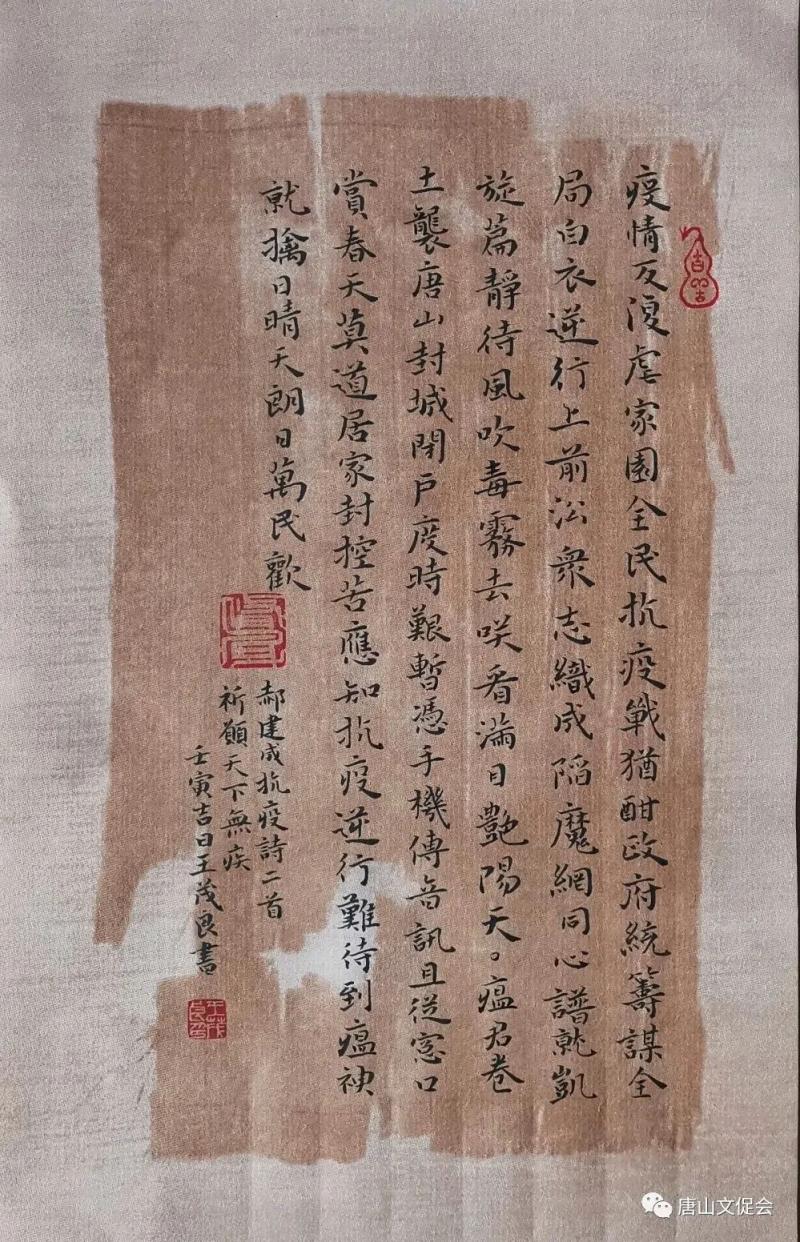 疫情反復虐家園全民抗疫戰猶酣政府統籌謀全
局白衣逆行上前沿衆志織成陷魔網同心譜就凱
旋篇靜待風吹毒霧去咲看滿目艷陽天。瘟君卷
土襲唐山封城閉戶度時艱暫憑手機傳音訊且從窓口
賞春天莫道居家封控苦應知抗疫逆行難待到瘟神
就擒日晴天朗日萬民歡
郝建成抗疫詩二首
祈願天下無疾
壬寅吉日王茂良書
王茂良印
唐山文促会